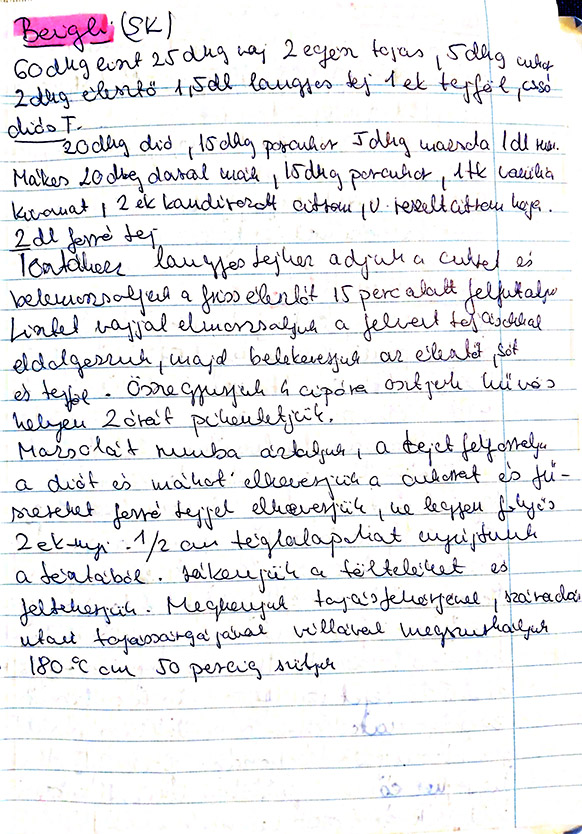 Beigli (SK)
60 dkg liszt 25 dkg vaj 2 egész tojás, 5 dkg cukor
2 dkg élesztő 1,5 dl langyos tej 1 ek tejföl, csó
diós T.
20 dkg dió, 15 dkg porcukor 5 dkg mazsola 1 dl rum.
Mákos 20 dkg darál mák, 15 dkg porcukor, 1 tk vanilia
kivonat, 2 ek kandírozott citrom, v. reszelt citrom héja.
2 dl forró tej
langyos tejhez adjuk a cukrot és
belemorzsoljuk a friss élesztőt 15 perc alatt felfuttatju
Lisztet vajjal elmorzsoljuk a felvert tojásokkal
eldolgozzuk, majd belekeverjük az élesztőt, sót
és tejföl. Összegyúrjuk 4 cipóra osztjuk hűvös
helyen 2 órát pihentetjük.
Mazsolát rumba áztatjuk, a tejet felforraljuk
a diót és mákot elkeverjük a cukorral és fű-
szereket forró tejjel elkeverjük, ne legyen folyós
2 ek-nyi. 1/2 cm téglalapokat nyújtunk
a tésztából. rákenjük a tölteléket és
feltekerjük. Megkenjük tojásfehérjével, száradás
után tojássárgájával villával megszurkáljuk
180 °C on 50 percig sütjük